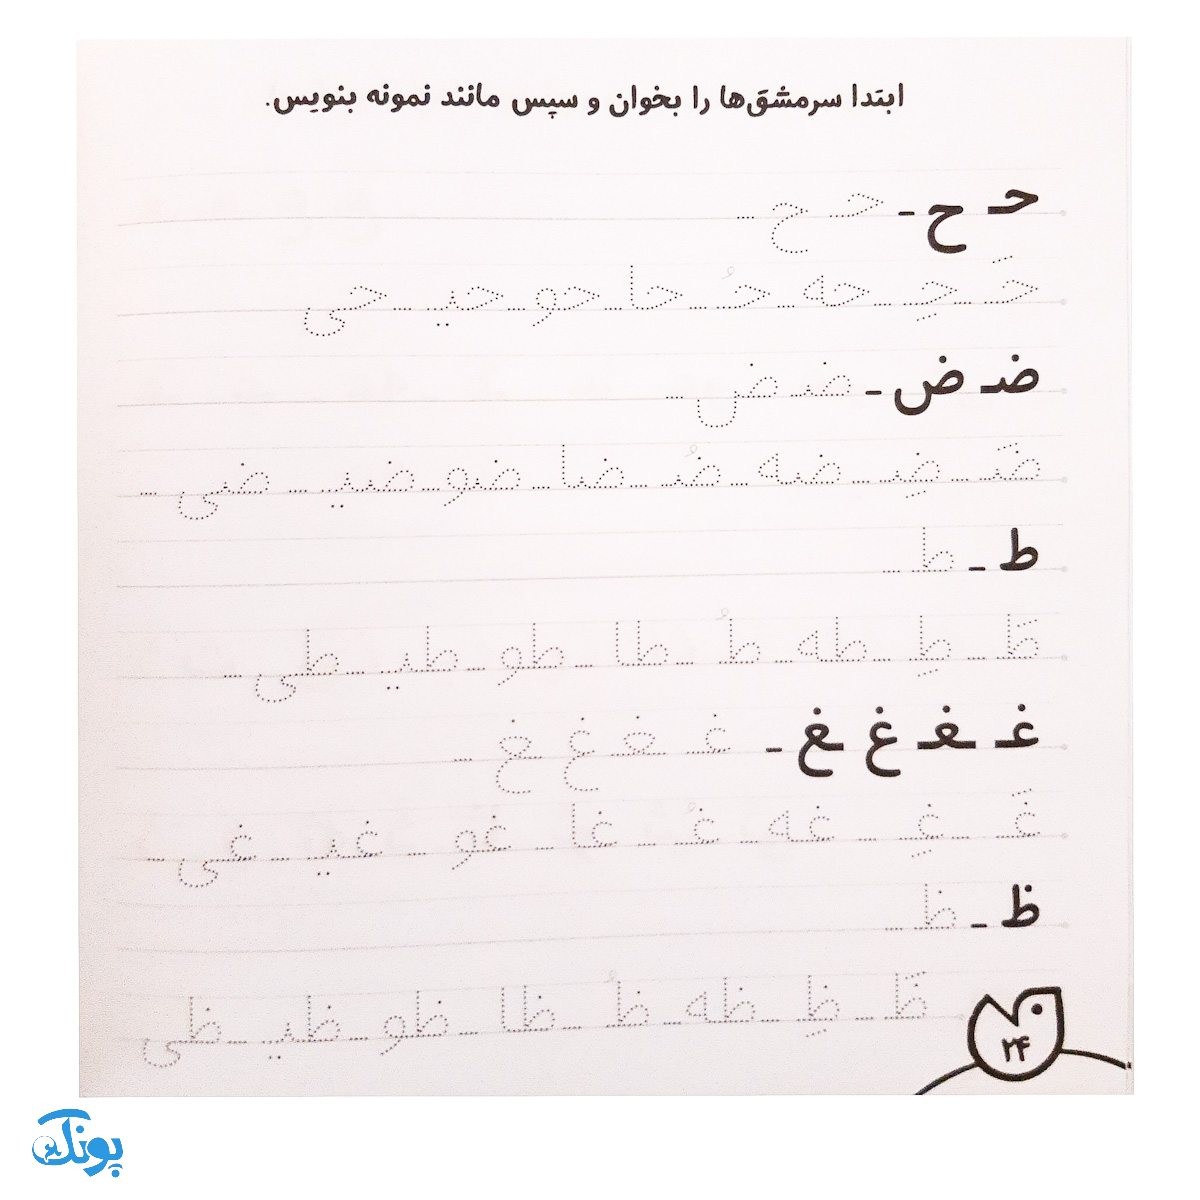 ابتدا سرمشق‌ها را بخوان و سپس مانند نمونه بنویس.
حـ ح - حـ ح -
حَـ - حِـ - حه - حُـ - حا - حو - حیـ - حی
ضـ ض - ضـ ض -
ضَـ - ضِـ - ضه - ضُـ - ضا - ضو - ضیـ - ضی -
ط - ط -
طَ - طِ - طه - طُ - طا - طو - طیـ - طی -
غـ ـغـ غ ـغ - غـ ـغـ غ ـغ -
غَـ - غِـ - غه - غُـ - غا - غو - غیـ - غی -
ظ - ظ -
ظَ - ظِ - ظه - ظُ - ظا - ظو - ظیـ - ظی
۲۴
پونک